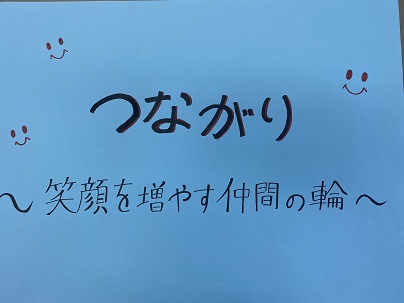 つながり
～笑顔を増やす仲間の輪～